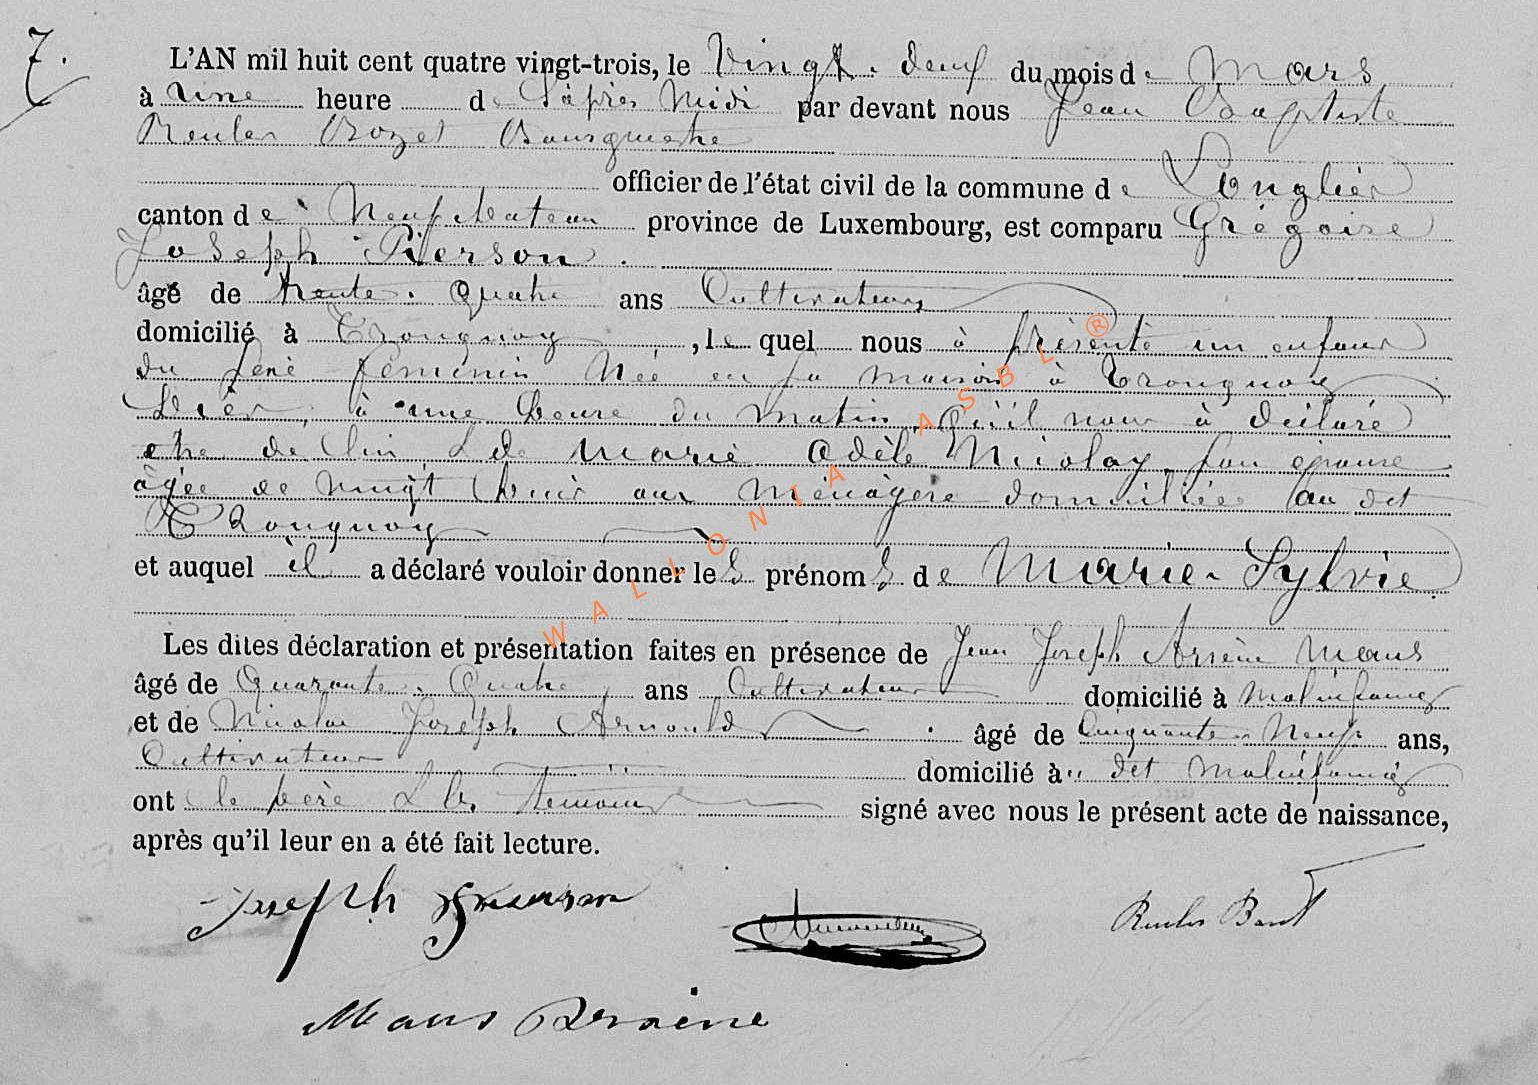 7.
L'AN mil huit cent quatre vingt-trois, le Vingt-deux du mois de Mars
à une heure de l'après Midi par devant nous Jean Baptiste
Reuler
officier de l'état civil de la commune de Longlier
canton de Neufchateau province de Luxembourg, est comparu Grégoire
Joseph Pierson
âgé de trente-quatre ans Cultivateur
domicilié à Tronquoy, lequel nous à présenté un enfant
du sexe féminin Née en sa maison à Tronquoy
hier, à une heure du matin qu'il nous à déclaré
être de lui & de Marie Adèle Nicolay son épouse
âgée de vingt huit ans Ménagère domiciliée au dit
Tronquoy
et auquel il a déclaré vouloir donner les prénoms de Marie-Sylvie
Les dites déclaration et présentation faites en présence de Jean Joseph Arsène Maus
âgé de Quarante-Quatre ans Cultivateur domicilié à Molinfaing
et de Nicolas Joseph Arnould âgé de Cinquante-Neuf ans,
Cultivateur domicilié à u dit Molinfaing
ont le père & les témoins signé avec nous le présent acte de naissance,
après qu'il leur en a été fait lecture.
Joseph
Maus Arsène
WALLONIA ASBL ®